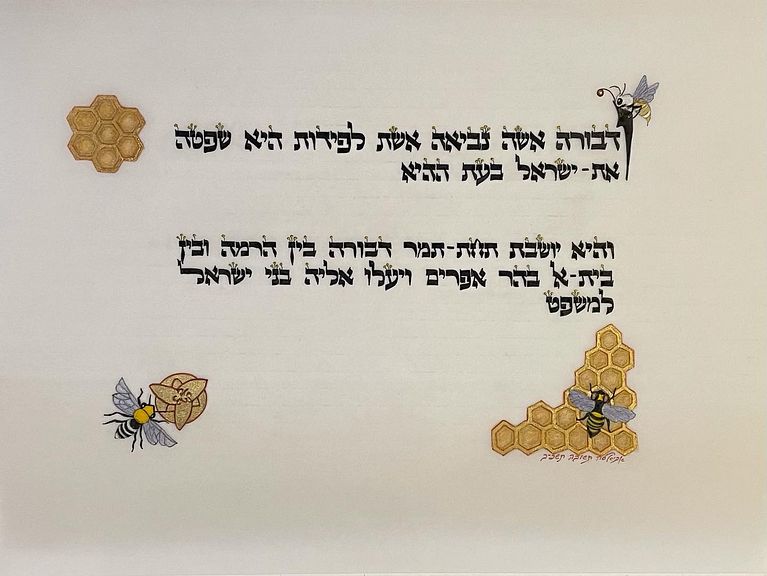 דבורה אשה נביאה אשת לפידות היא שפטה
את-ישראל בעת ההיא
והיא יושבת תחת-תמר דבורה בין הרמה ובין
בית-אל בהר אפרים ויעלו אליה בני ישראל
למשפט